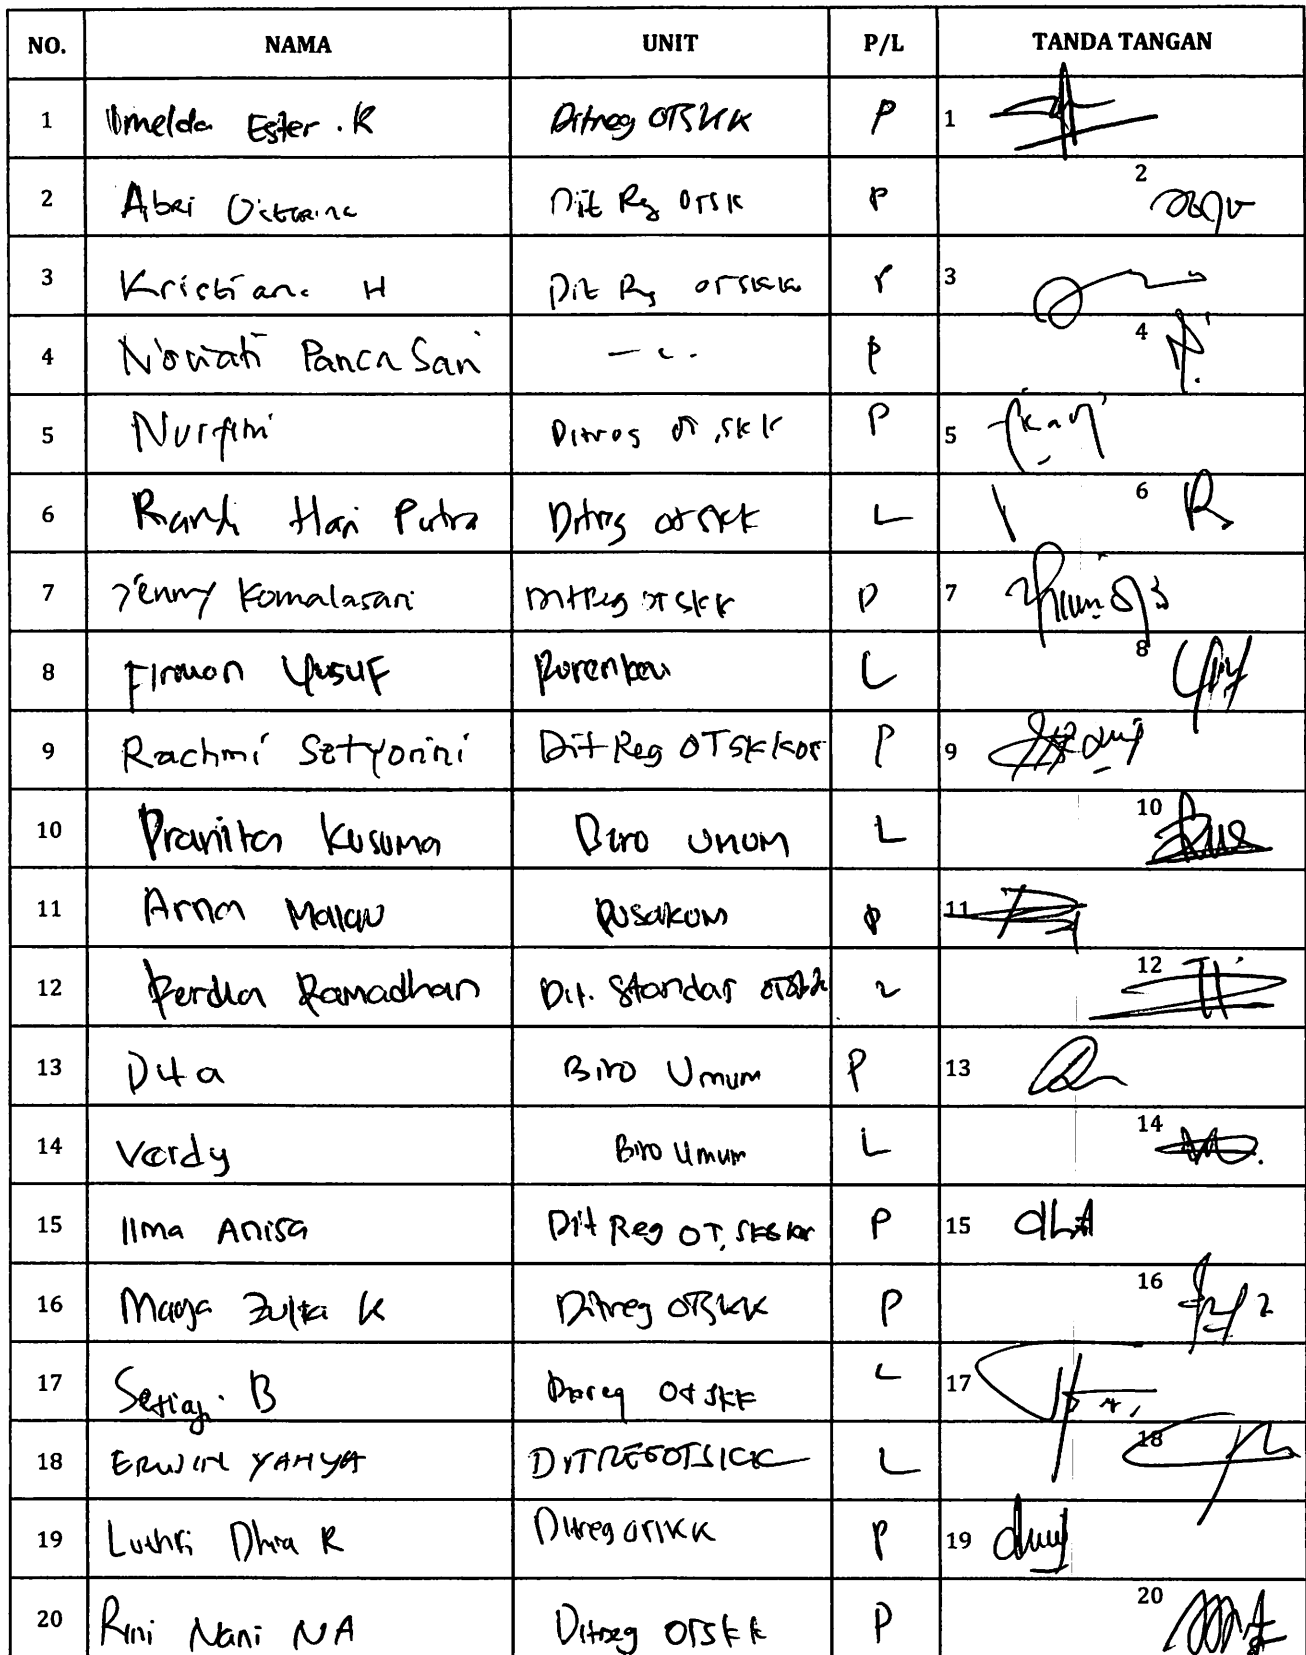 NO. NAMA UNIT P/L TANDA TANGAN
1 Imelda Ester . R Ditreg OTSKK P 1
2 Abri Dit Reg OTSK P 2
3 Kristiana H Dit Reg OTSKK P 3
4 Noviati Panca Sari P 4
5 Nurfitri Ditreg OT, SKK P 5
6 Randi Hari Putra Ditreg OT SKK L 6
7 Yenny Komalasari DitReg OT SKK P 7
8 Firman Yusuf Rorenkeu L 8
9 Rachmi Setyorini Dit Reg OTSKKos P 9
10 Pranita Kusuma Biro Umum L 10
11 Arna Malau Pusakom P 11
12 Ferdian Ramadhan Dit. Standar L 12
13 Dita Biro Umum P 13
14 Verdy Biro Umum L 14
15 Ilma Anisa Dit Reg OT, SKKos P 15
16 Zulfa K Ditreg OTSKK P 16
17 B Ditreg OT SKK L 17
18 ERWIN YAHYA DITREGOTSKK L 18
19 Luthfi Dhia R Ditreg OTSKK P 19
20 Rini Nani NA Ditreg OTSKK P 20